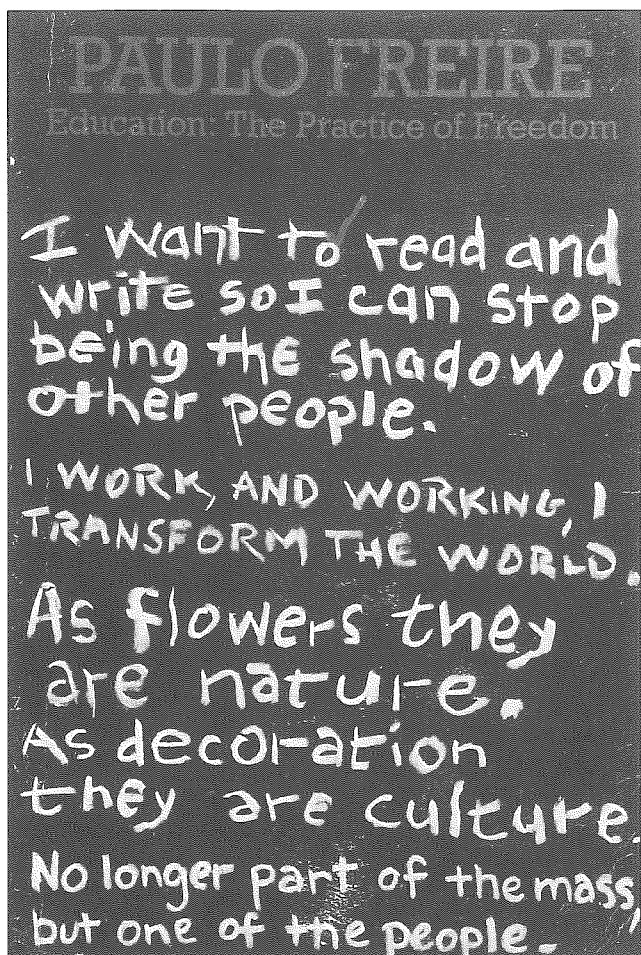 PAULO FREIRE
Education: The Practice of Freedom
I want to read and
write so I can stop
being the shadow of
other people.
I WORK, AND WORKING, I
TRANSFORM THE WORLD.
As flowers they
are nature.
As decoration
they are culture.
No longer part of the mass,
but one of the people.